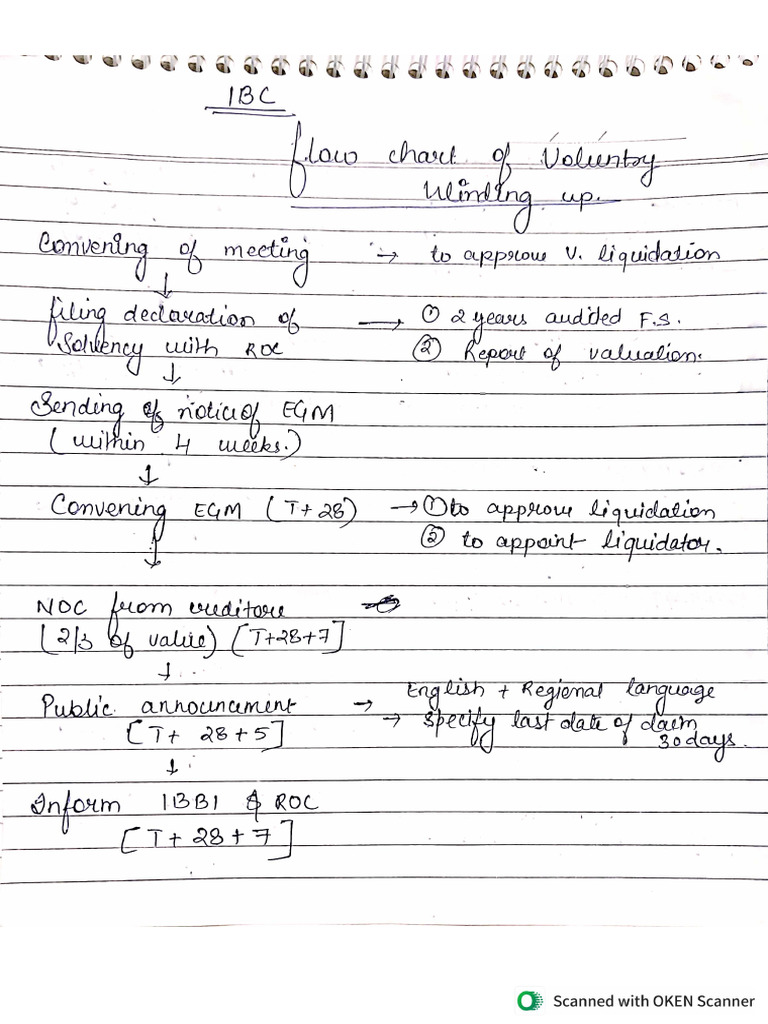 IBC
flow chart of Voluntry
Winding up.
Convening of meeting → to approve V. liquidation
↓
filing declaration of → ① 2 years audited F.S.
Solvency with ROC ② Report of valuation.
↓
Sending of notice of EGM
(within 4 weeks.)
↓
Convening EGM (T+28) → ① to approve liquidation
② to appoint liquidator.
↓
NOC from creditors
(2/3 of value) [T+28+7]
↓
Public announcement → English + Regional language
[T+ 28+5] → Specify last date of claim
30 days.
↓
Inform IBBI & ROC
[T+ 28+7]
Scanned with OKEN Scanner